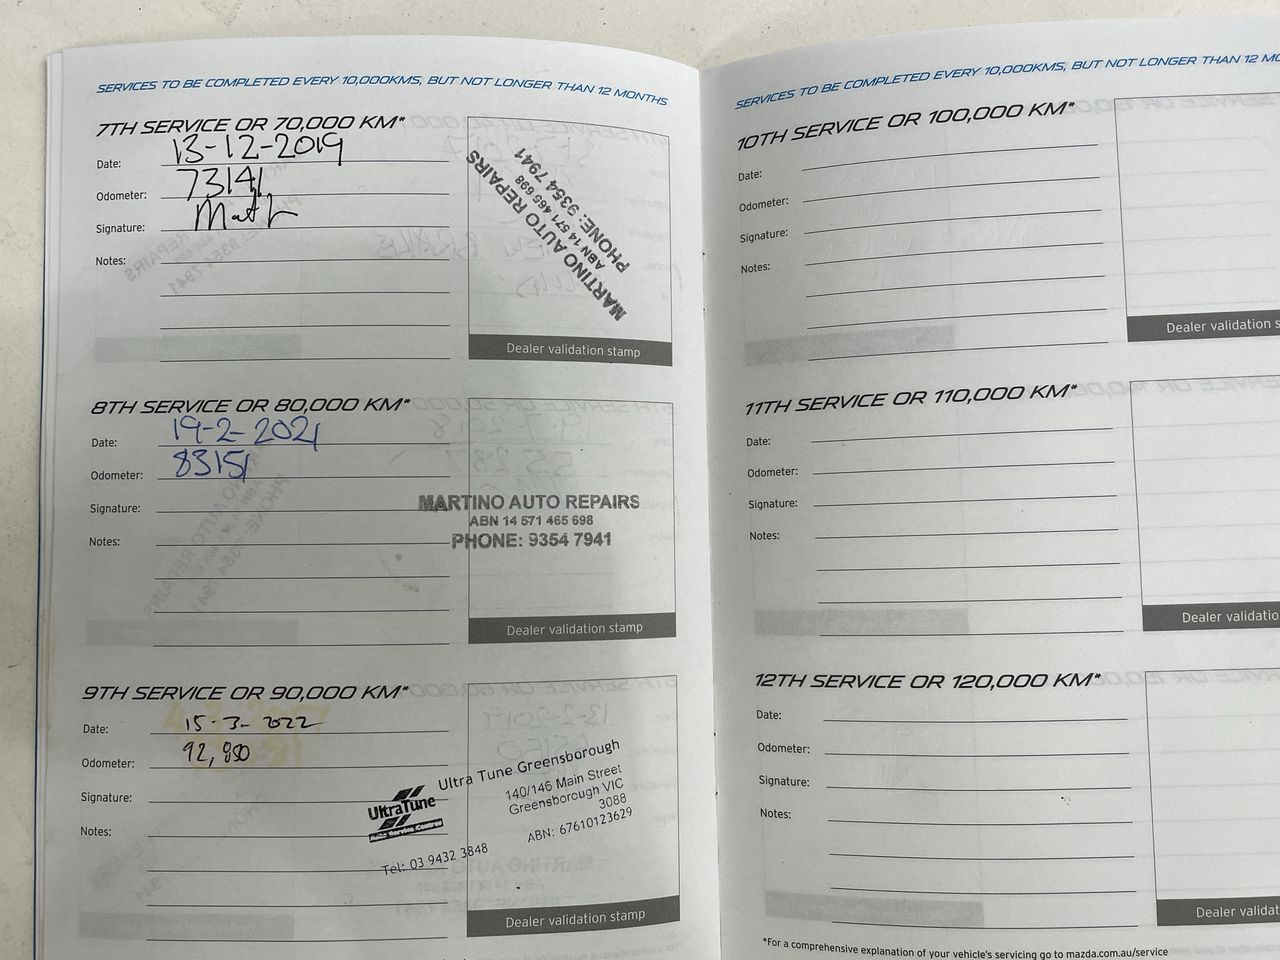 SERVICES TO BE COMPLETED EVERY 10,000KMS, BUT NOT LONGER THAN 12 MONTHS
7TH SERVICE OR 70,000 KM*
Date: 13-12-2019
Odometer: 73141
Signature:
Notes:
MARTINO AUTO REPAIRS
ABN 14 571 465 698
PHONE: 9354 7941
Dealer validation stamp
8TH SERVICE OR 80,000 KM*
Date: 19-2-2021
Odometer: 83151
Signature:
Notes:
MARTINO AUTO REPAIRS
ABN 14 571 465 698
PHONE: 9354 7941
Dealer validation stamp
9TH SERVICE OR 90,000 KM*
Date: 15-3-2022
Odometer: 92,850
Signature:
Notes:
UltraTune
Auto Service Centres
Ultra Tune Greensborough
140/146 Main Street
Greensborough VIC
3088
ABN: 67610123629
Tel: 03 9432 3848
Dealer validation stamp
SERVICES TO BE COMPLETED EVERY 10,000KMS, BUT NOT LONGER THAN 12 MO
10TH SERVICE OR 100,000 KM*
Date:
Odometer:
Signature:
Notes:
Dealer validation s
11TH SERVICE OR 110,000 KM*
Date:
Odometer:
Signature:
Notes:
Dealer validatio
12TH SERVICE OR 120,000 KM*
Date:
Odometer:
Signature:
Notes:
Dealer validat
*For a comprehensive explanation of your vehicle's servicing go to mazda.com.au/service